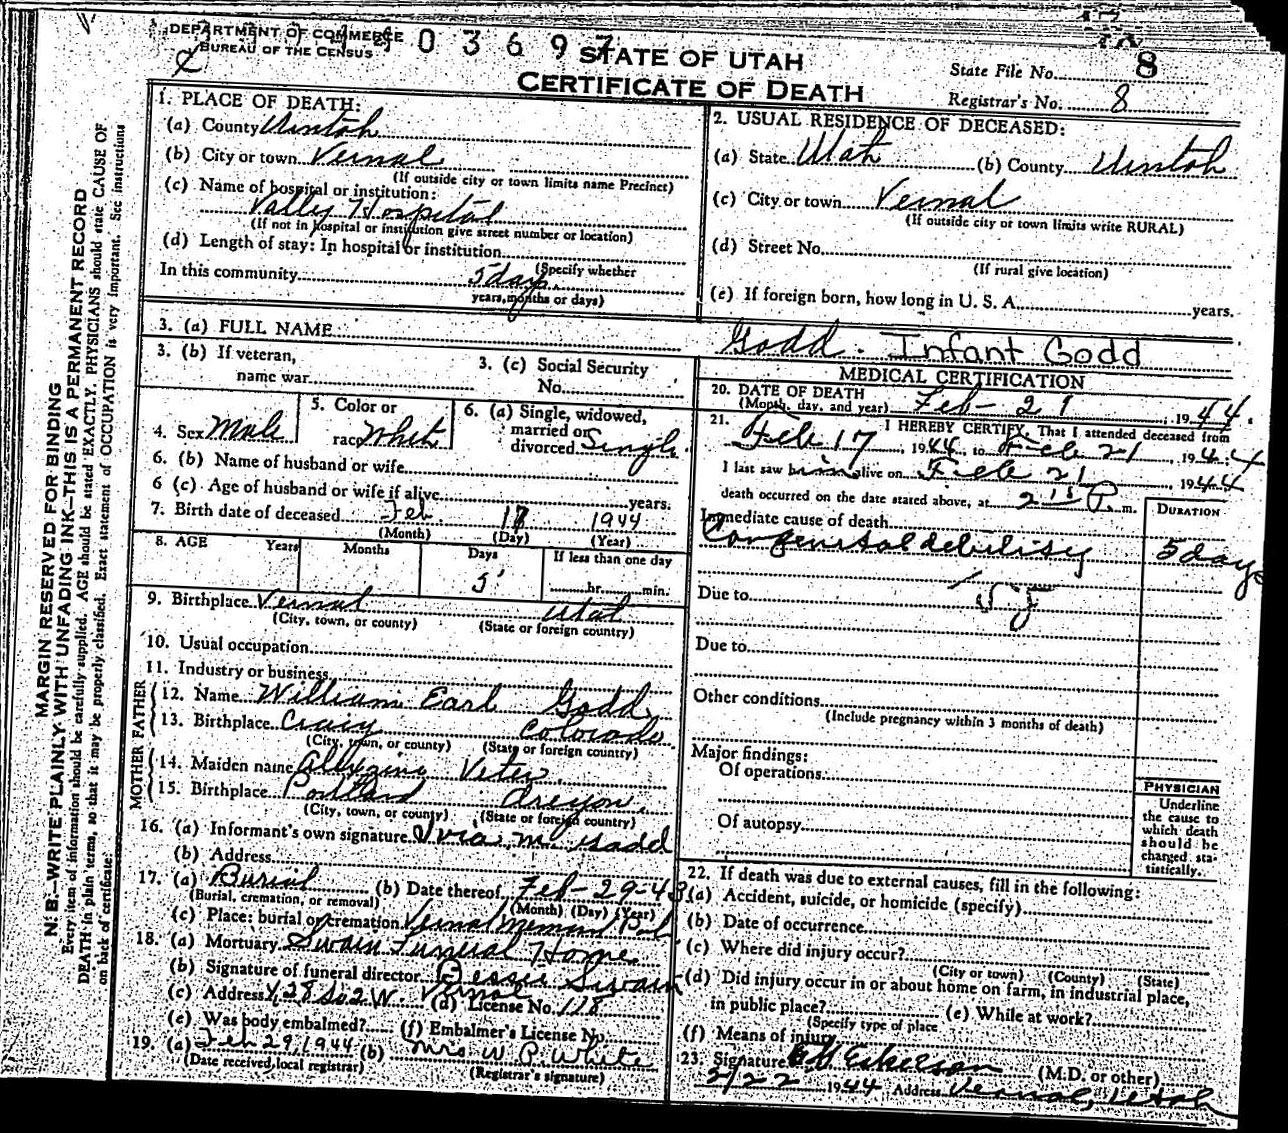 DEPARTMENT OF COMMERCE
BUREAU OF THE CENSUS
0 3 6 9 7
STATE OF UTAH
CERTIFICATE OF DEATH
State File No. 8
Registrar's No. 8
MARGIN RESERVED FOR BINDING
N. B.—WRITE PLAINLY WITH UNFADING INK—THIS IS A PERMANENT RECORD
Every item of information should be carefully supplied. AGE should be stated EXACTLY. PHYSICIANS should state CAUSE OF
DEATH in plain terms, so that it may be properly classified. Exact statement of OCCUPATION is very important. See instructions
on back of certificate.
1. PLACE OF DEATH:
(a) County Uintah
(b) City or town Vernal
(If outside city or town limits name Precinct)
(c) Name of hospital or institution:
Vally Hospital
(If not in hospital or institution give street number or location)
(d) Length of stay: In hospital or institution
(Specify whether
In this community 5 days
years, months or days)
2. USUAL RESIDENCE OF DECEASED:
(a) State Utah (b) County Uintah
(c) City or town Vernal
(If outside city or town limits write RURAL)
(d) Street No.
(If rural give location)
(e) If foreign born, how long in U. S. A. years.
3. (a) FULL NAME Godd. Infant Godd
3. (b) If veteran,
name war
3. (c) Social Security
No.
4. Sex Male
5. Color or
race White
6. (a) Single, widowed,
married or
divorced Single
6. (b) Name of husband or wife
6 (c) Age of husband or wife if alive years.
7. Birth date of deceased Feb. 17 1944
(Month) (Day) (Year)
8. AGE Years Months Days If less than one day
5 hr. min.
9. Birthplace Vernal Utah
(City, town, or county) (State or foreign country)
10. Usual occupation
11. Industry or business
FATHER
12. Name William Earl Godd
13. Birthplace Craig Colorado
(City, town, or county) (State or foreign country)
MOTHER
14. Maiden name
15. Birthplace Portland Oregon
(City, town, or county) (State or foreign country)
16. (a) Informant's own signature M. Gadd
(b) Address
17. (a) Burial (b) Date thereof Feb-29-43
(Burial, cremation, or removal) (Month) (Day) (Year)
(c) Place: burial or cremation Vernal Memorial Park
18. (a) Mortuary Swain Funeral Home
(b) Signature of funeral director Bessie Swain
(c) Address 428 So 2 W. Vernal (d) License No. 118
(e) Was body embalmed? (f) Embalmer's License No.
19. (a) Feb 29, 1944 (b) Mrs W. P. White
(Date received local registrar) (Registrar's signature)
MEDICAL CERTIFICATION
20. DATE OF DEATH
(Month, day, and year) Feb- 21, 1944.
21. I HEREBY CERTIFY, That I attended deceased from
Feb 17, 1944, to Feb 21, 1944
I last saw him alive on Feb 21, 1944
death occurred on the date stated above, at 2 15 P. m.
DURATION
Immediate cause of death
Congenital debility 5 days
Due to
Due to
Other conditions
(Include pregnancy within 3 months of death)
Major findings:
Of operations
Of autopsy
PHYSICIAN
Underline
the cause to
which death
should be
charged sta-
tistically.
22. If death was due to external causes, fill in the following:
(a) Accident, suicide, or homicide (specify)
(b) Date of occurrence
(c) Where did injury occur?
(City or town) (County) (State)
(d) Did injury occur in or about home on farm, in industrial place,
in public place? (e) While at work?
(Specify type of place
(f) Means of injury
23. Signature (M.D. or other)
2/22 1944 Address Vernal, Utah